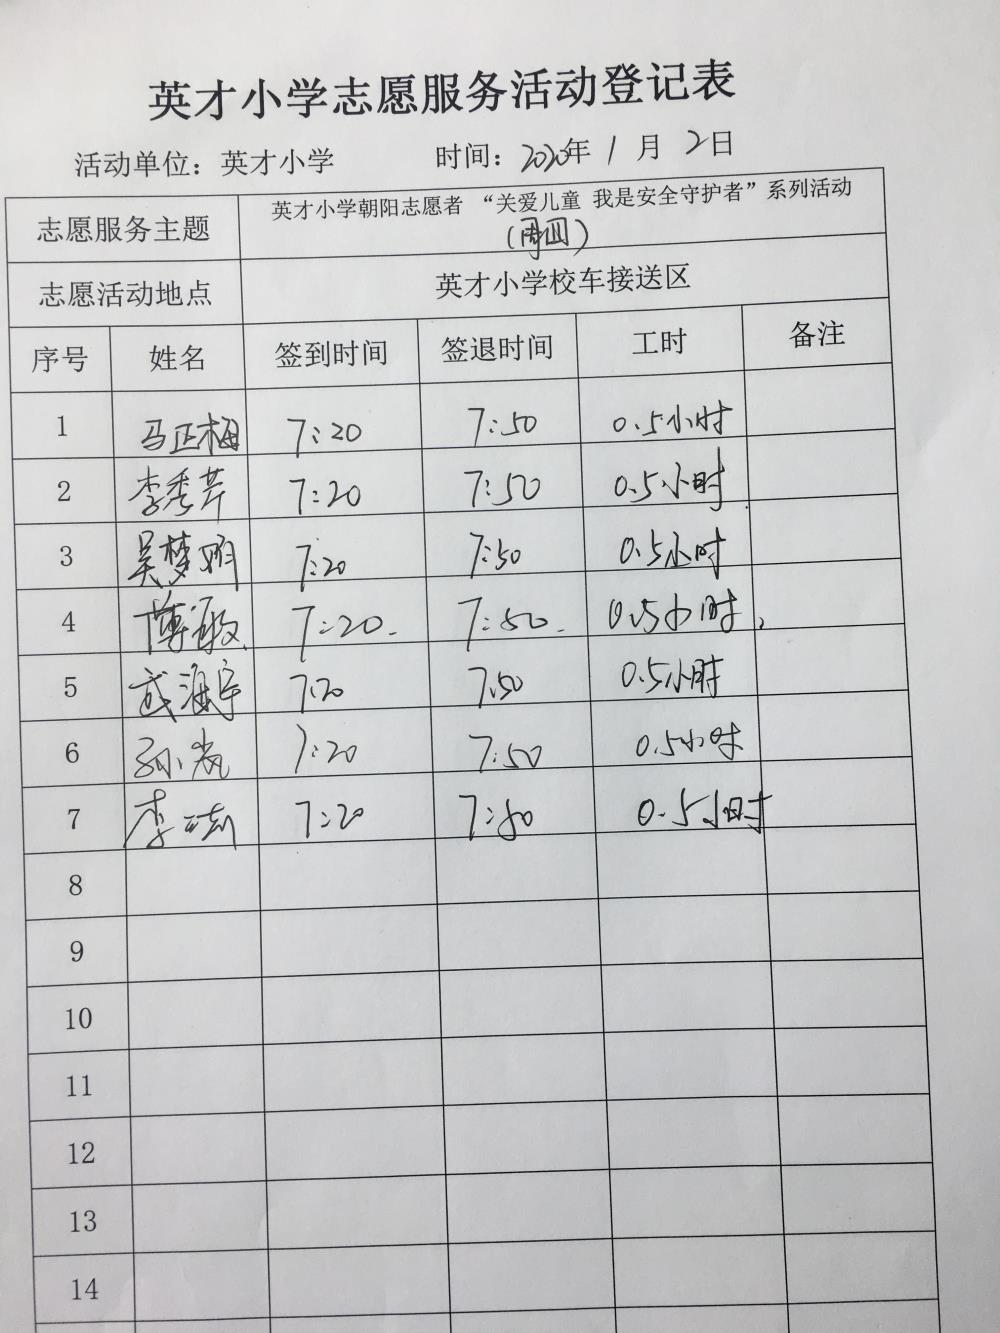 英才小学志愿服务活动登记表
活动单位：英才小学 时间：2020年1月2日
志愿服务主题 英才小学朝阳志愿者 “关爱儿童 我是安全守护者”系列活动
(周四)
志愿活动地点 英才小学校车接送区
序号 姓名 签到时间 签退时间 工时 备注
1 马正梅 7:20 7:50 0.5小时
2 李秀芹 7:20 7:50 0.5小时
3 吴梦 7:20 7:50 0.5小时
4 薄敏 7:20 7:50 0.5小时
5 7:20 7:50 0.5小时
6 孙岚 7:20 7:50 0.5小时
7 李 7:20 7:50 0.5小时
8
9
10
11
12
13
14